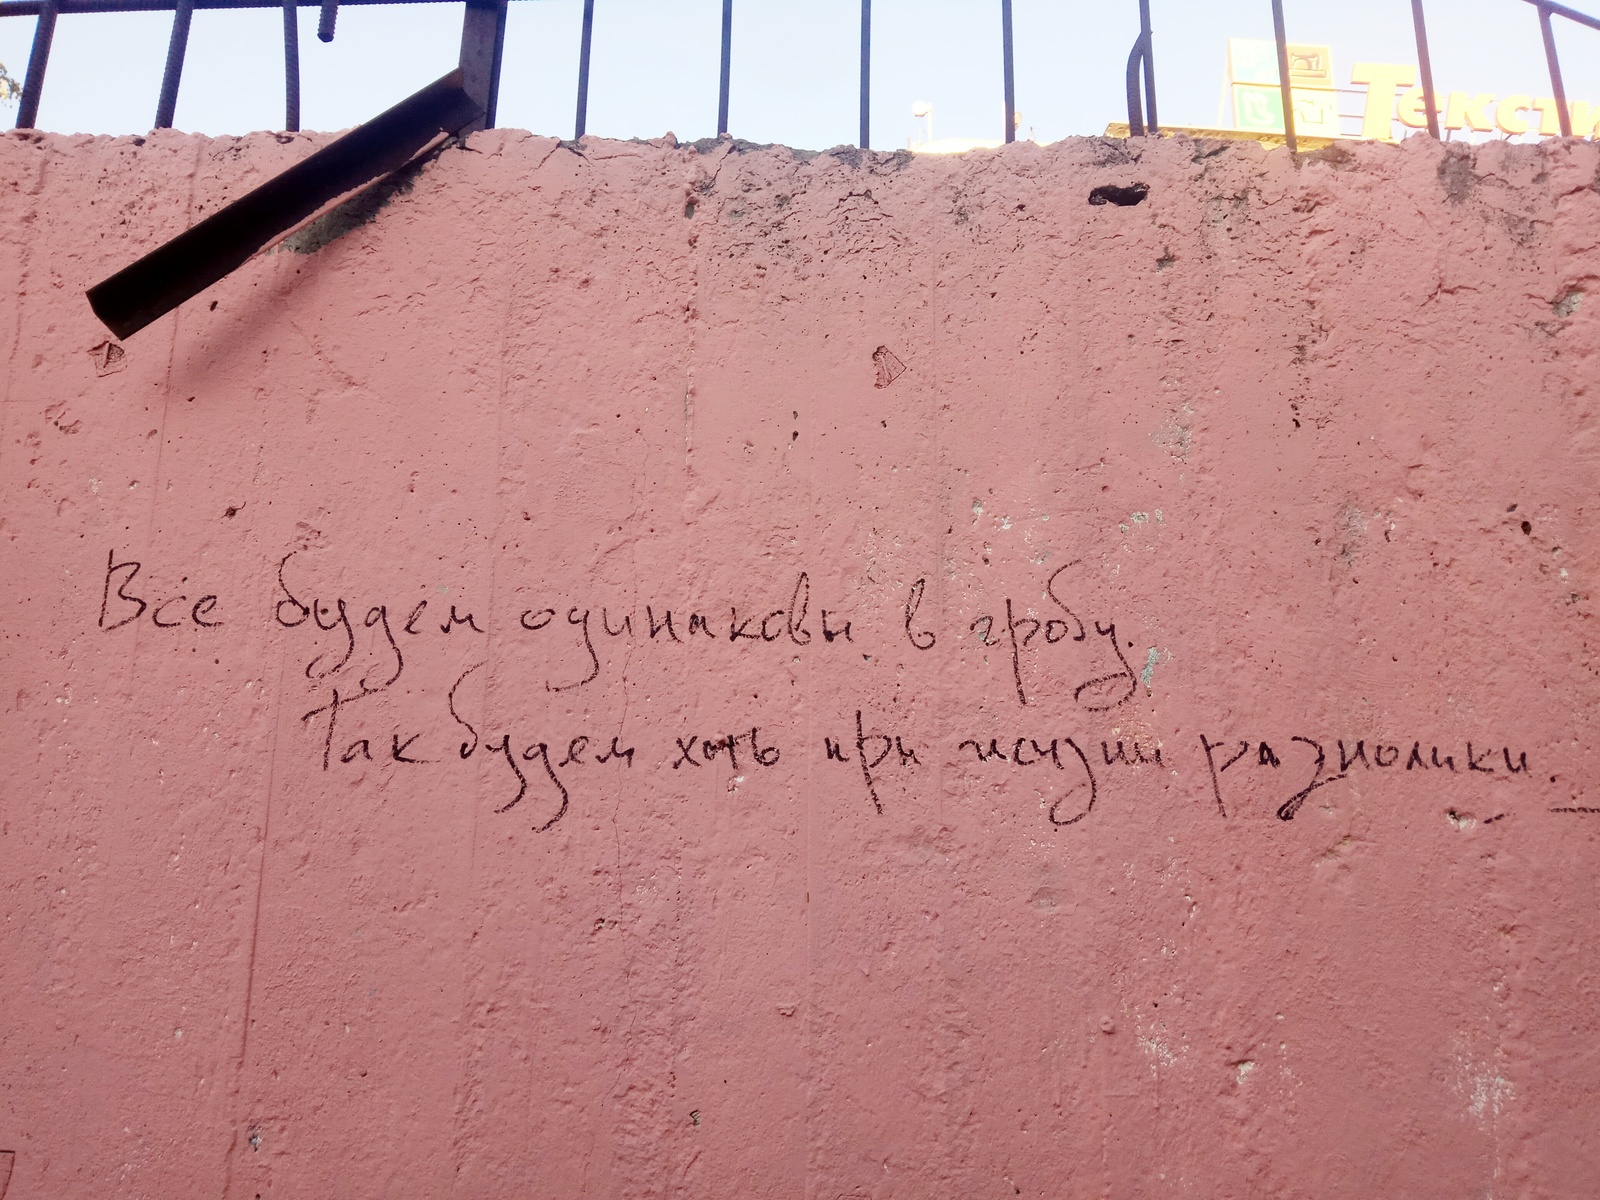 Тексти
Все будем одинаковы в гробу.
Так будем хоть при жизни разнолики.